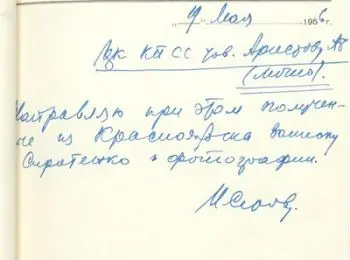 „9“ Мая 1956 г.
ЦК КПСС тов. Аристову АБ
(лично).
Направляю при этом получен-
ые из Красноярска записку
Сиротенко и фотографии.